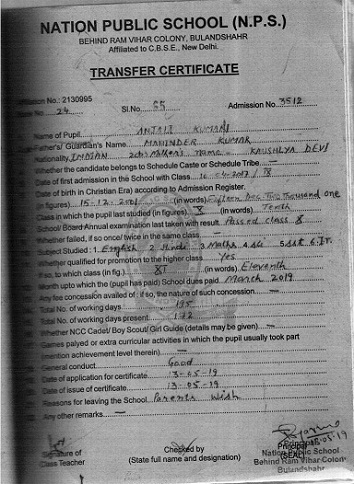 NATION PUBLIC SCHOOL (N.P.S.)
BEHIND RAM VIHAR COLONY, BULANDSHAHR
Affiliated to C.B.S.E., New Delhi.
TRANSFER CERTIFICATE
Affiliation No.: 2130995
No. 24 Sl.No. 55 Admission No. 3512
Name of Pupil ANJALI KUMARI
Father's/ Guardian's Name MANINDER KUMAR
Nationality INDIAN Mother's Name KAUSHLYA DEVI
Whether the candidate belongs to Schedule Caste or Schedule Tribe
Date of first admission in the School with Class
Date of birth in Christian Era) according to Admission Register.
(in figures) 15-12-2001 (in words) Fifteen Dec Two thousand one
Class in which the pupil last studied (in figures) X (in words) Tenth
School/ Board Annual examination last taken with result Passed class X
Whether failed, if so once/ twice in the same class
Subject Studied : 1. English 2 Hindi 3 Maths 4.Sc 5.SSt 6.IT.
Whether qualified for promotion to the higher class Yes
If so, to which class (in fig.) XI (in words) Eleventh
Month upto which the (pupil has paid) School dues paid March 2019
Any fee concession availed of : if so, the nature of such concession
Total No. of working days 195
Total No. of working days present 172
Whether NCC Cadet/ Boy Scout/ Girl Guide (details may be given)
Games palyed or extra curricular activities in which the pupil usually took part
(mention achievement level therein)
General conduct Good
Date of application for certificate 13-05-19
Date of issue of certificate 13-05-19
Reasons for leaving the School Parents Wish
Any other remarks
Signature of
Class Teacher
Checked by
(State full name and designation)
Principal
Nation Public School
Behind Ram Vihar Colony
Bulandshahr